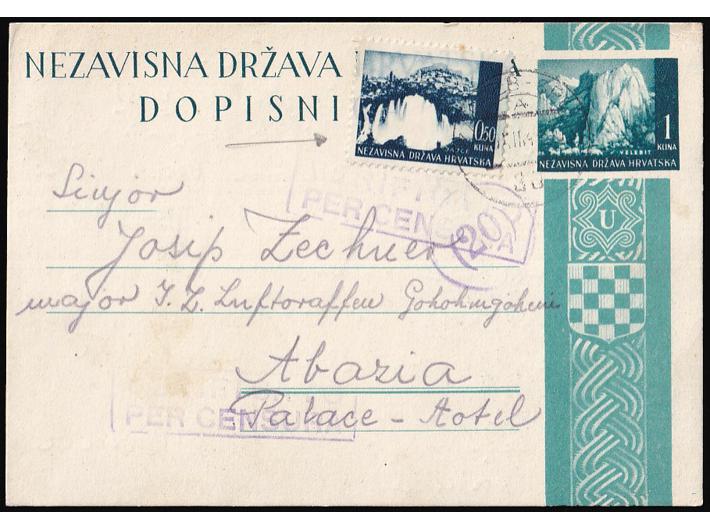 NEZAVISNA DRŽAVA
DOPISNI
0.50
KUNA
NEZAVISNA DRŽAVA HRVATSKA
1
KUNA
VELEBIT
NEZAVISNA DRŽAVA HRVATSKA
U
Sinjor
PER CENSURA
20
Josip Zechner
major I. Z. Luftwaffen
Abazia
PER CENSURA
Palace - Hotel